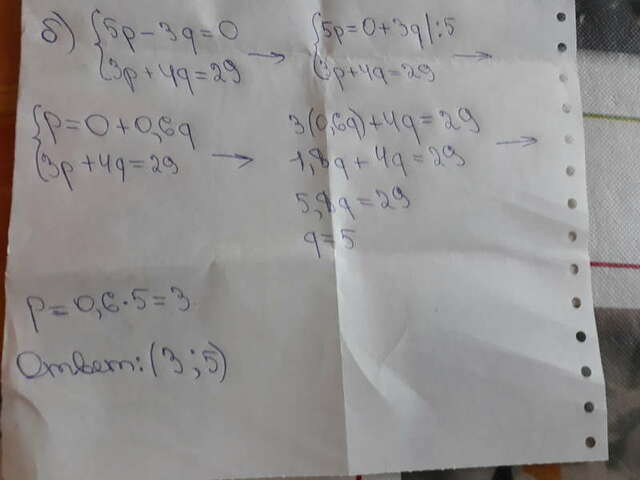 б) {5p - 3q = 0
{3p + 4q = 29 →
{5p = 0 + 3q |:5
{3p + 4q = 29 →
{p = 0 + 0,6q
{3p + 4q = 29 →
3(0,6q) + 4q = 29 →
1,8q + 4q = 29
5,8q = 29
q = 5
p = 0,6 · 5 = 3
Ответ: (3; 5)